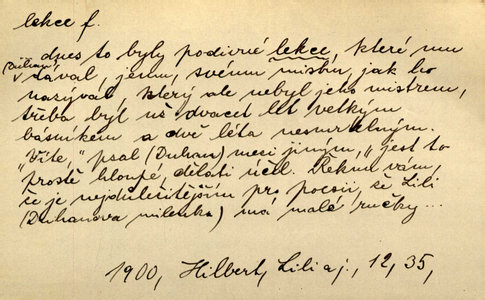 lekce f.
dnes to byly podivné lekce, které mu
(Duhan) dával, jemu, svému mistru, jak ho
nazýval, který ale nebyl jeho mistrem,
třeba byl už dvacet let velkým
básníkem a dvě léta nesmrtelným.
"Víte," psal (Duhan) mezi jiným, "jest to
prostě hloupé, dělati účel. Řeknu vám,
že je nejdůležitějším pro poesii, že Lili
(Duhanova milenka) má malé ručky...
1900, Hilbert, Lili a j., 12, 35,